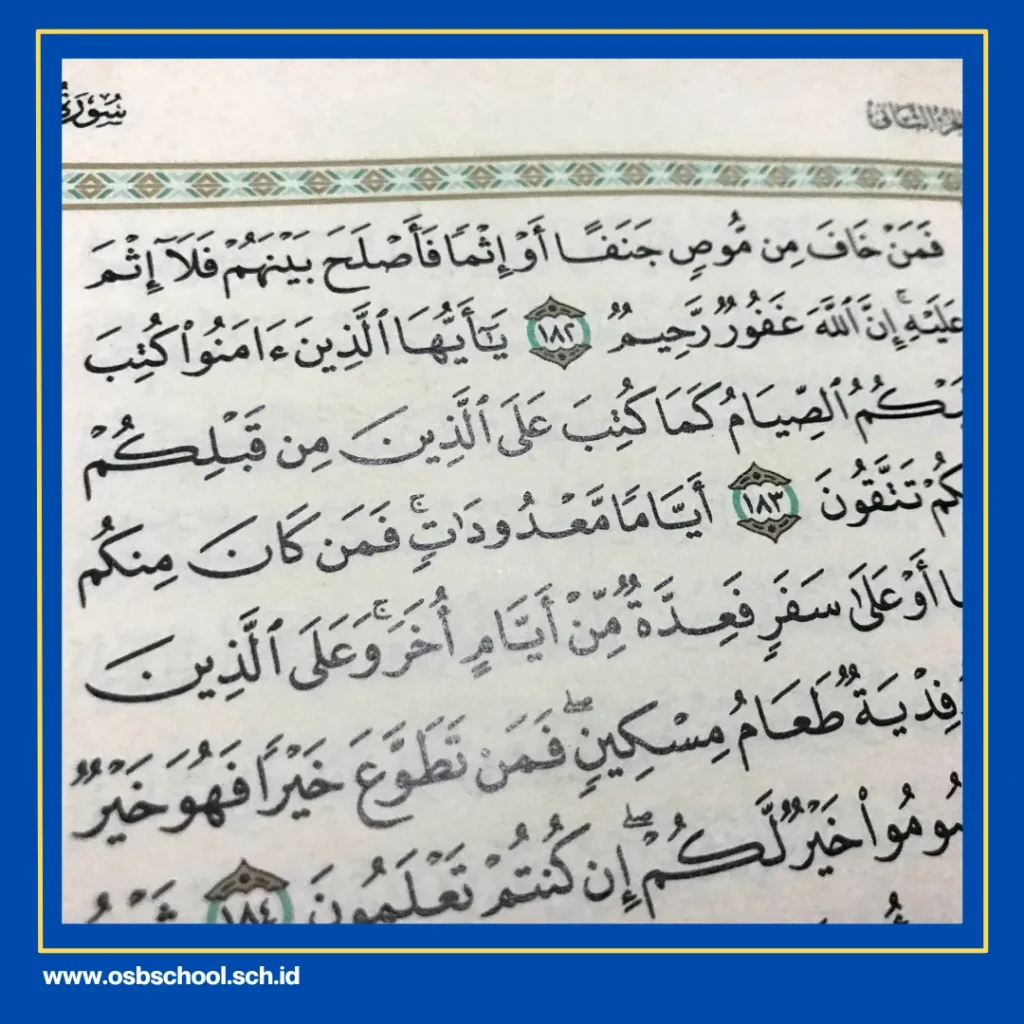 الجزء الثاني سورة
فَمَنْ خَافَ مِن مُّوصٍ جَنَفًا أَوْ إِثْمًا فَأَصْلَحَ بَيْنَهُمْ فَلَآ إِثْمَ
عَلَيْهِ ۚ إِنَّ ٱللَّهَ غَفُورٌ رَّحِيمٌ ١٨٢ يَـٰٓأَيُّهَا ٱلَّذِينَ ءَامَنُوا۟ كُتِبَ
ٱلصِّيَامُ كَمَا كُتِبَ عَلَى ٱلَّذِينَ مِن قَبْلِكُمْ
تَتَّقُونَ ١٨٣ أَيَّامًا مَّعْدُودَٰتٍ ۚ فَمَن كَانَ مِنكُم
أَوْ عَلَىٰ سَفَرٍ فَعِدَّةٌ مِّنْ أَيَّامٍ أُخَرَ ۚ وَعَلَى ٱلَّذِينَ
فِدْيَةٌ طَعَامُ مِسْكِينٍ ۖ فَمَن تَطَوَّعَ خَيْرًا فَهُوَ خَيْرٌ
خَيْرٌ لَّكُمْ ۖ إِن كُنتُمْ تَعْلَمُونَ ١٨٤
www.osbschool.sch.id